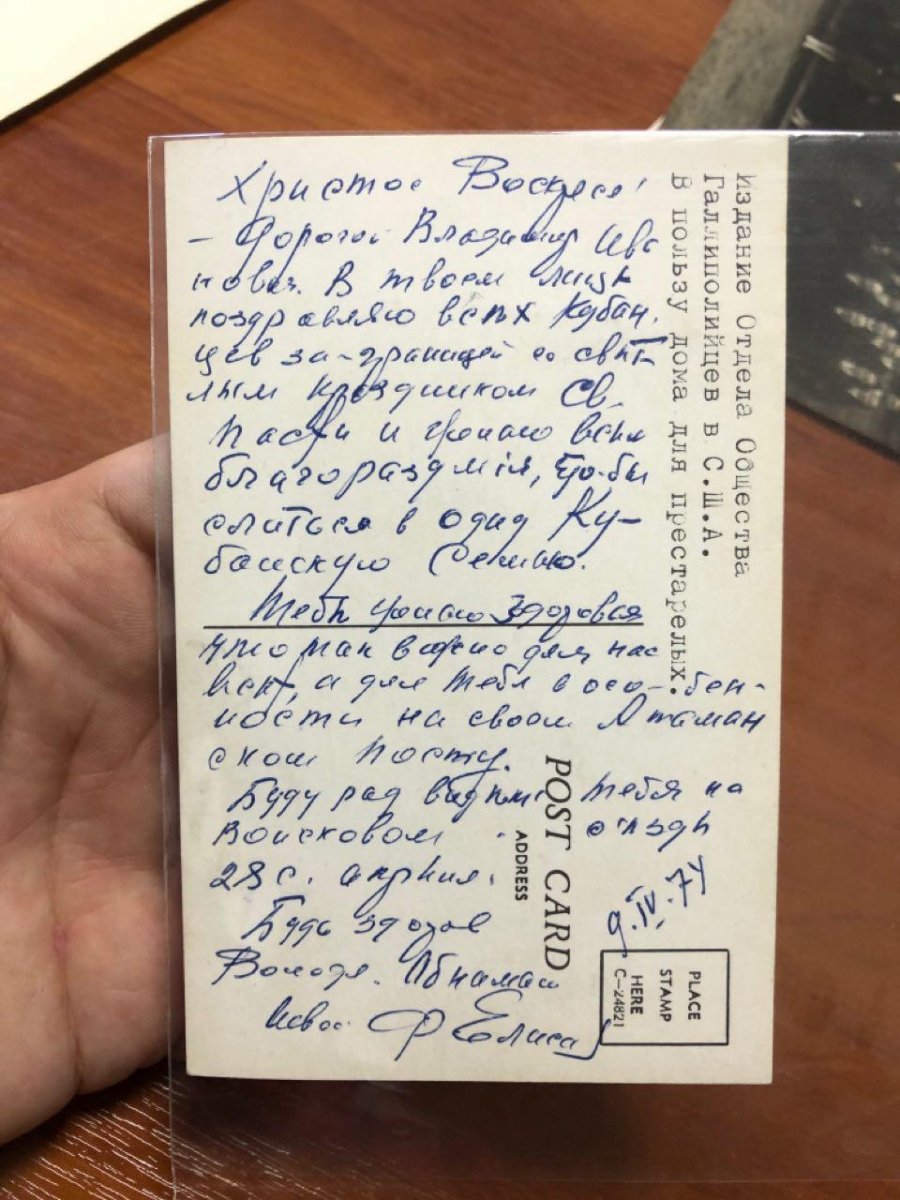 Христос Воскресе!
– Дорогой Владимир Ива
нович. В твоем лицѣ
поздравляю всѣх Кубан.
цев за-границей со свѣт-
лым праздником Св.
Пасхи и желаю всѣм
благоразумія, что-бы
слиться в одну Ку-
банскую Семью.
Тебѣ желаю Здоровья
что так важно для нас
всѣх, а для тебя в осо-бен-
ности на своем Атаман
ском посту.
Буду рад видѣть тебя на
Войсковом съѣздѣ
28 с. апрѣля.
Будь здоров
Володя. Обнимаю
Твой Ф Елисе
9.IV.74
издание Отдела Общества
Галлиполийцев в С.Ш.А.
В пользу дома для престарелых.
POST CARD
ADDRESS
PLACE
STAMP
HERE
C–24821